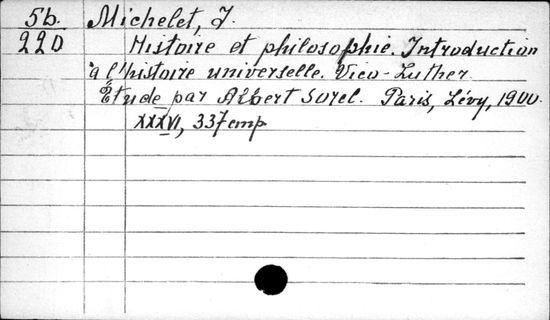 5b. Michelet, J.
220 Histoire et philosophie. Introduction
à l'histoire universelle. Vico-Luther.
Étude par Albert Sorel. Paris, Lévy, 1900.
XXXVI, 337 стр